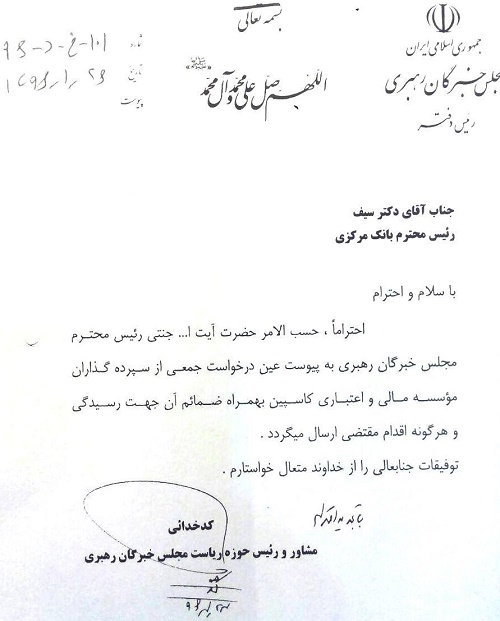 بسمه تعالی
جمهوری اسلامی ایران
مجلس خبرگان رهبری
رئیس دفتر
اللهم صل علی محمد و آل محمد
شماره
تاریخ
پیوست
جناب آقای دکتر سیف
رئیس محترم بانک مرکزی
با سلام و احترام
احتراماً ، حسب الامر حضرت آیت ا... جنتی رئیس محترم
مجلس خبرگان رهبری به پیوست عین درخواست جمعی از سپرده گذاران
مؤسسه مالی و اعتباری کاسپین بهمراه ضمائم آن جهت رسیدگی
و هرگونه اقدام مقتضی ارسال میگردد .
توفیقات جنابعالی را از خداوند متعال خواستارم .
کدخدائی
مشاور و رئیس حوزه ریاست مجلس خبرگان رهبری